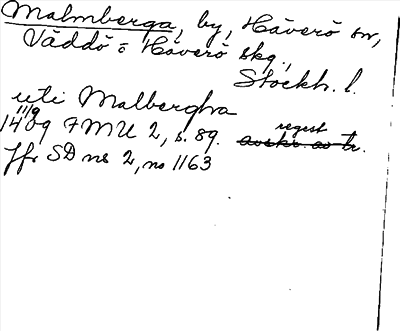 Malmberga, by, Häverö sn,
Väddö o Häverö skg.,
Stockh. l.
uti Malbergha
11/9
1409 FMU 2, s. 89. regest
avskr. av tr.
Jfr SD ns 2, no 1163